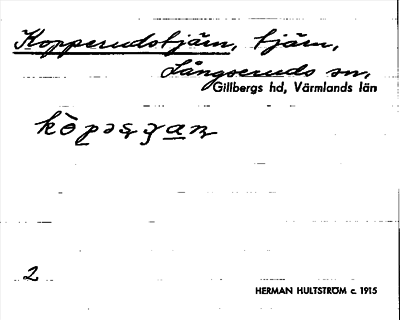 Kopperudstjärn, tjärn,
Långseruds sn,
Gillbergs hd, Värmlands län
2
HERMAN HULTSTRÖM c. 1915